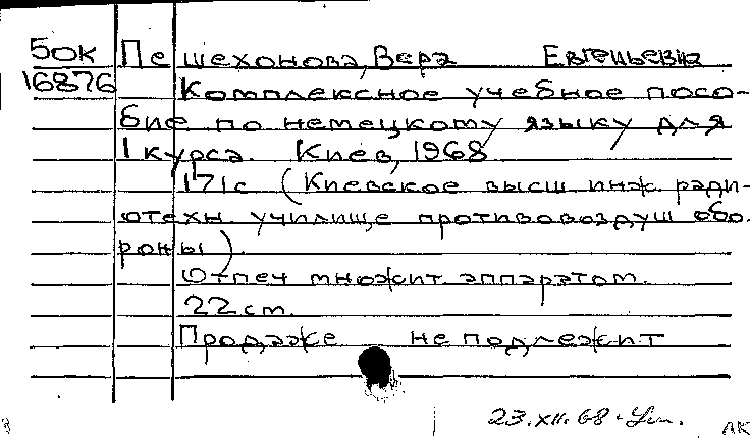 БОК Пешехонова, Вера Евгеньевна
16876 Комплексное учебное посо-
бие по немецкому языку для
1 курса. Киев, 1968
171с (Киевское высш инж ради-
отехн. училище противовоздуш обо-
роны).
Отпеч множит. аппаратом.
22 см.
Продаже не подлежит
23.XII.68